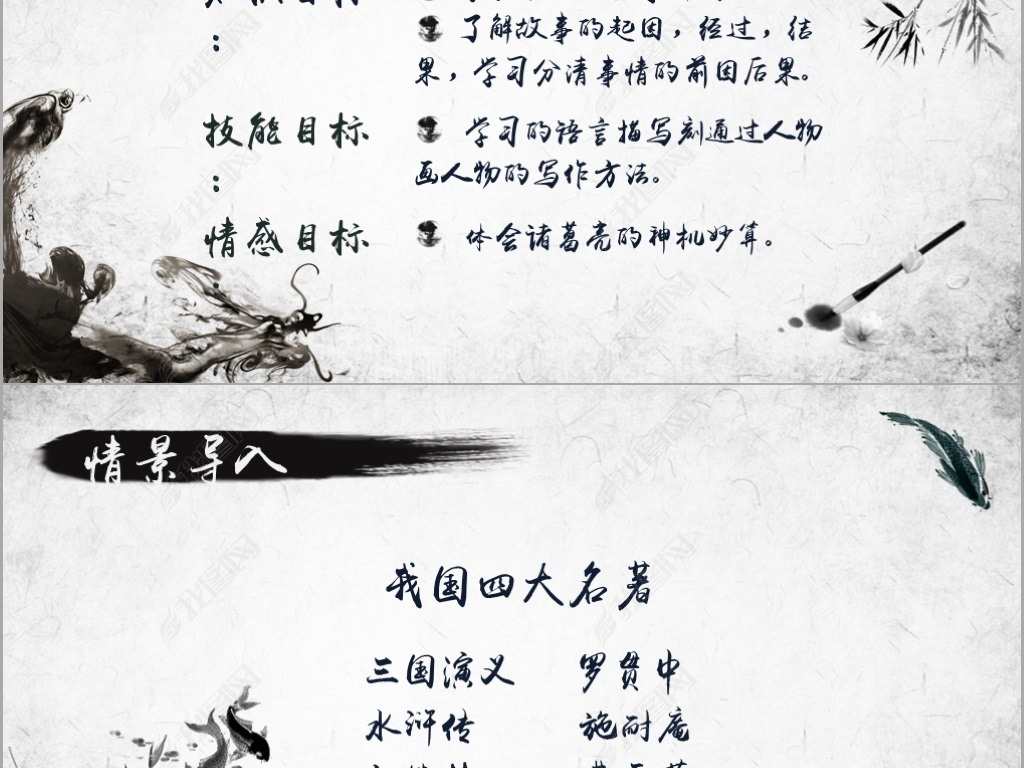 了解故事的起因，经过，结
果，学习分清事情的前因后果。
技能目标
：
学习的语言描写刻通过人物
画人物的写作方法。
情感目标
：
体会诸葛亮的神机妙算。
情景导入
我国四大名著
三国演义 罗贯中
水浒传 施耐庵